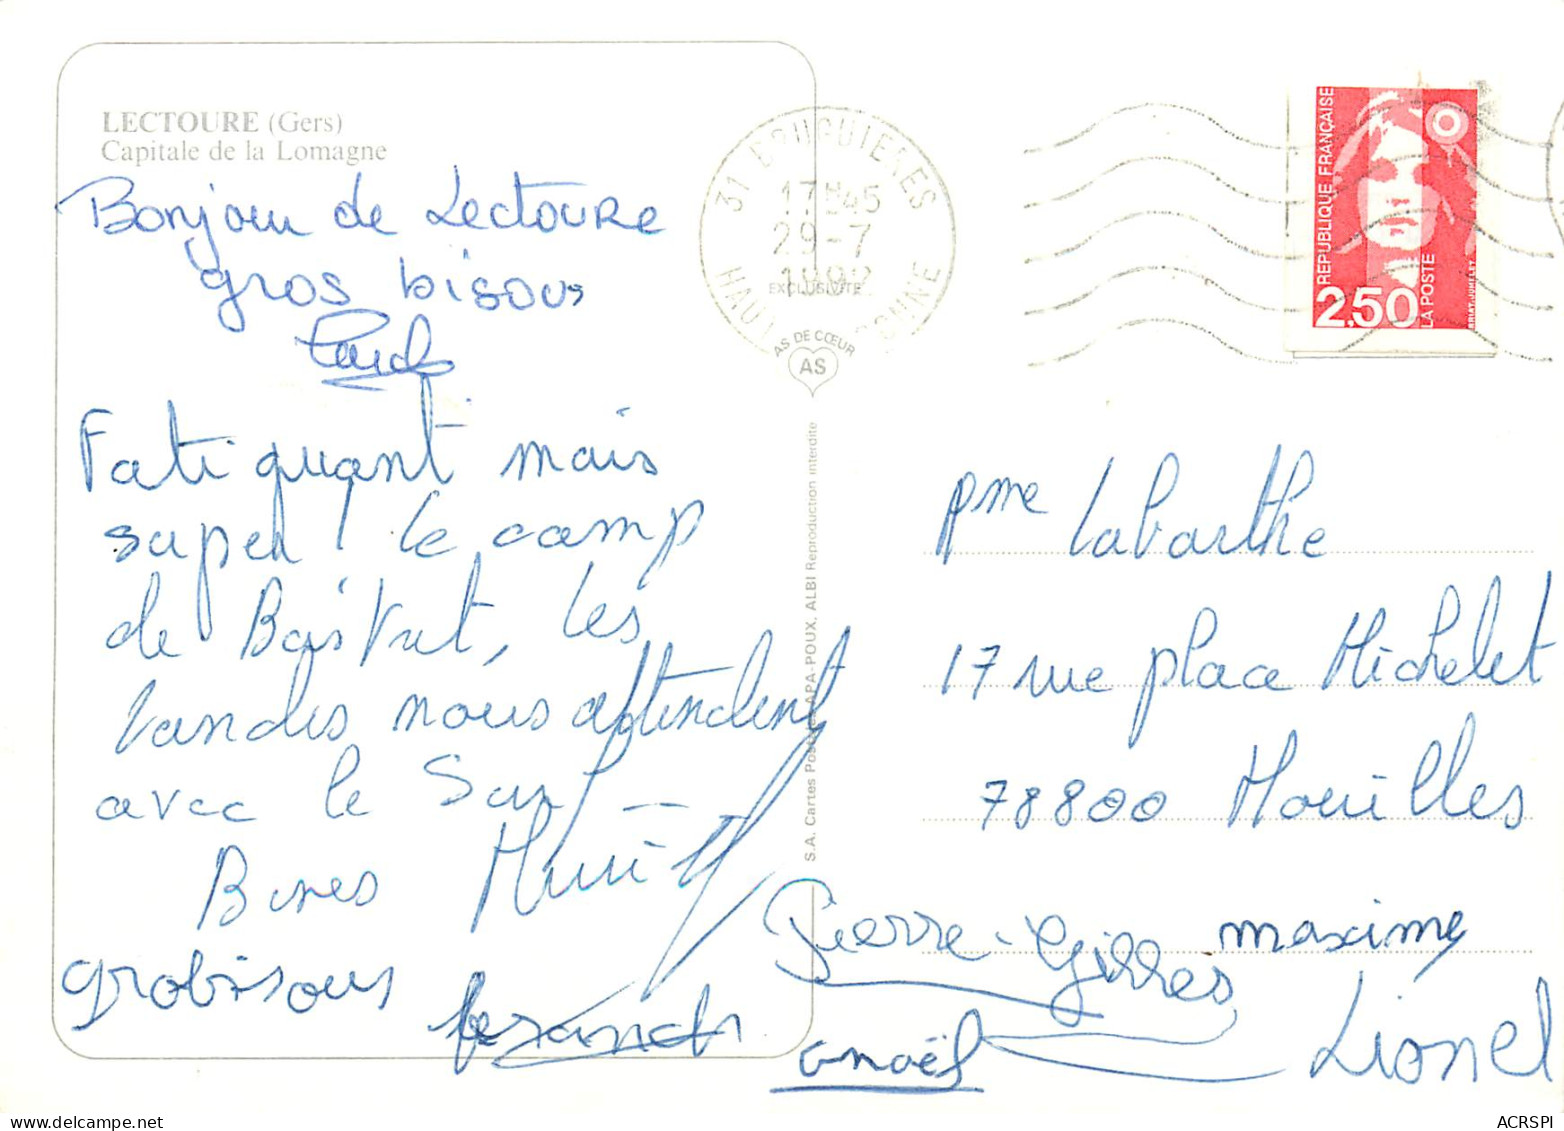 LECTOURE (Gers)
Capitale de la Lomagne
Bonjour de Lectoure
gros bisous
Fatiquant mais
super! le camp
de
les
nous attendent
avec le
Bises
grobisous
franck
31 BOUGUIERES
17H45
29-7
1992
HAUTE GARONNE
EXCLUSIVITE
AS DE CŒUR
AS
S.A. Cartes Postales APA-POUX, ALBI Reproduction interdite
REPUBLIQUE FRANÇAISE
2,50
LA POSTE
BRIAT-JUMELET
Labarthe
17 rue place Michelet
78800 Houilles
Pierre-Gilles
maxime
anaël
Lionel
ACRSPI